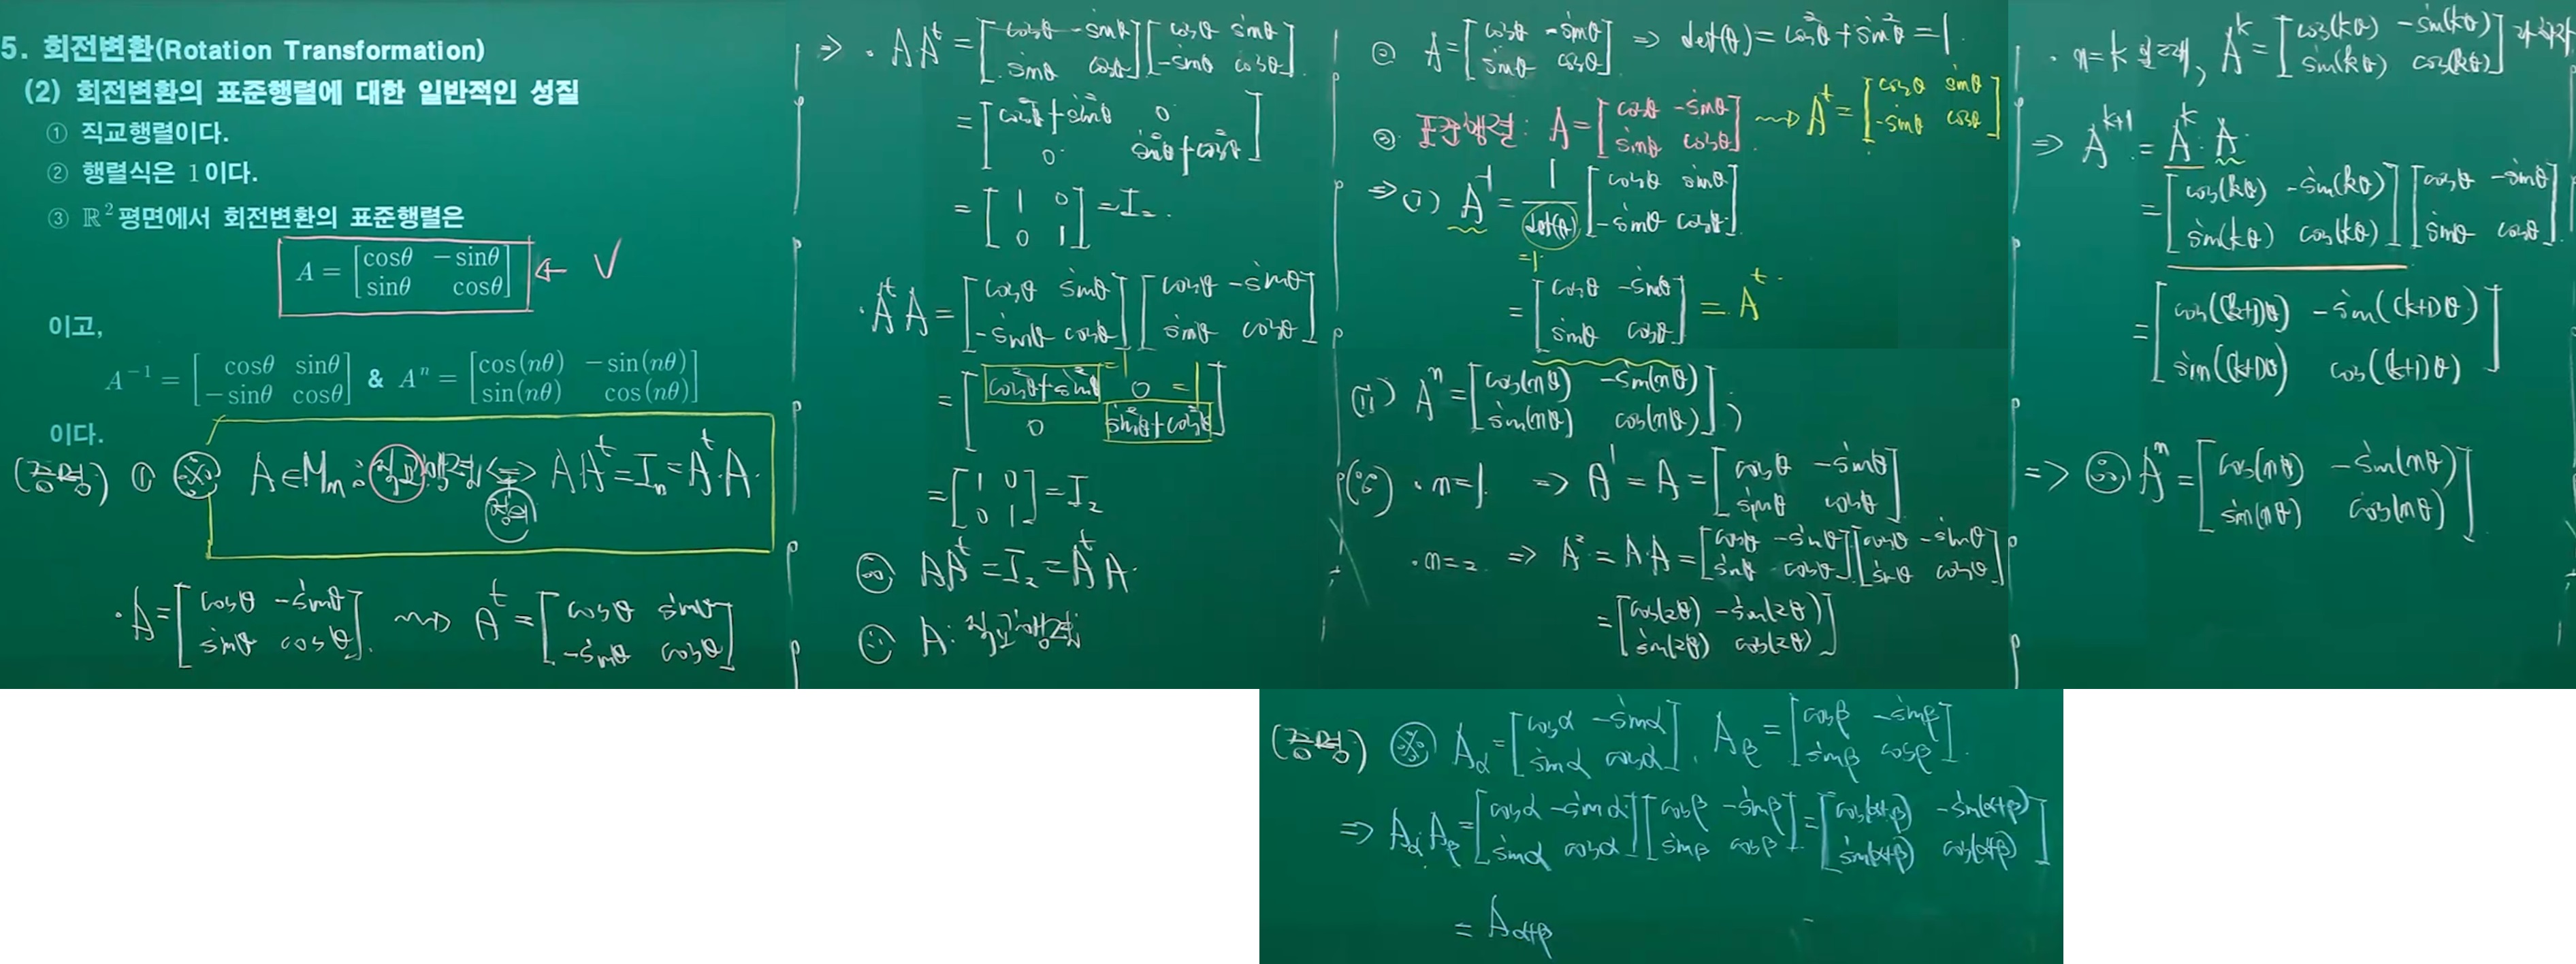 5. 회전변환(Rotation Transformation)
(2) 회전변환의 표준행렬에 대한 일반적인 성질
① 직교행렬이다.
② 행렬식은 1이다.
③ ℝ²평면에서 회전변환의 표준행렬은
A = [cosθ −sinθ
sinθ cosθ] ← V
이고,
A⁻¹ = [cosθ sinθ
−sinθ cosθ] & Aⁿ = [cos(nθ) −sin(nθ)
sin(nθ) cos(nθ)]
이다.
(증명) ① ※ A∈Mₙ : 직교행렬 ⇔ AAᵗ = Iₙ = AᵗA.
정의
· A = [cosθ −sinθ
sinθ cosθ]. ⇝ Aᵗ = [cosθ sinθ
−sinθ cosθ]
⇒ · AAᵗ = [cosθ −sinθ
sinθ cosθ][cosθ sinθ
−sinθ cosθ]
= [cos²θ+sin²θ 0
0 sin²θ+cos²θ]
= [1 0
0 1] = I₂.
· AᵗA = [cosθ sinθ
−sinθ cosθ][cosθ −sinθ
sinθ cosθ]
= [cos²θ+sin²θ =1 0
0 sin²θ+cos²θ =1]
= [1 0
0 1] = I₂
∴ AAᵗ = I₂ = AᵗA.
∴ A : 직교행렬
② A = [cosθ −sinθ
sinθ cosθ] ⇒ det(A) = cos²θ + sin²θ = 1.
③ 표준행렬 : A = [cosθ −sinθ
sinθ cosθ]. ⇝ Aᵗ = [cosθ sinθ
−sinθ cosθ]
⇒ (i) A⁻¹ = 1/det(A) [cosθ sinθ
−sinθ cosθ]
=1.
= [cosθ −sinθ
sinθ cosθ] = Aᵗ.
(ii) Aⁿ = [cos(nθ) −sin(nθ)
sin(nθ) cos(nθ)] ;
(∵) · n=1. ⇒ A¹ = A = [cosθ −sinθ
sinθ cosθ]
· n=2. ⇒ A² = A·A = [cosθ −sinθ
sinθ cosθ][cosθ −sinθ
sinθ cosθ]
= [cos(2θ) −sin(2θ)
sin(2θ) cos(2θ)]
· n=k 일 때, Aᵏ = [cos(kθ) −sin(kθ)
sin(kθ) cos(kθ)]
⇒ Aᵏ⁺¹ = Aᵏ·A.
= [cos(kθ) −sin(kθ)
sin(kθ) cos(kθ)][cosθ −sinθ
sinθ cosθ]
= [cos((k+1)θ) −sin((k+1)θ)
sin((k+1)θ) cos((k+1)θ)]
⇒ ∴ Aⁿ = [cos(nθ) −sin(nθ)
sin(nθ) cos(nθ)].
(증명) ※ A_α = [cosα −sinα
sinα cosα], A_β = [cosβ −sinβ
sinβ cosβ].
⇒ A_α·A_β = [cosα −sinα
sinα cosα][cosβ −sinβ
sinβ cosβ] = [cos(α+β) −sin(α+β)
sin(α+β) cos(α+β)]
= A_α+β